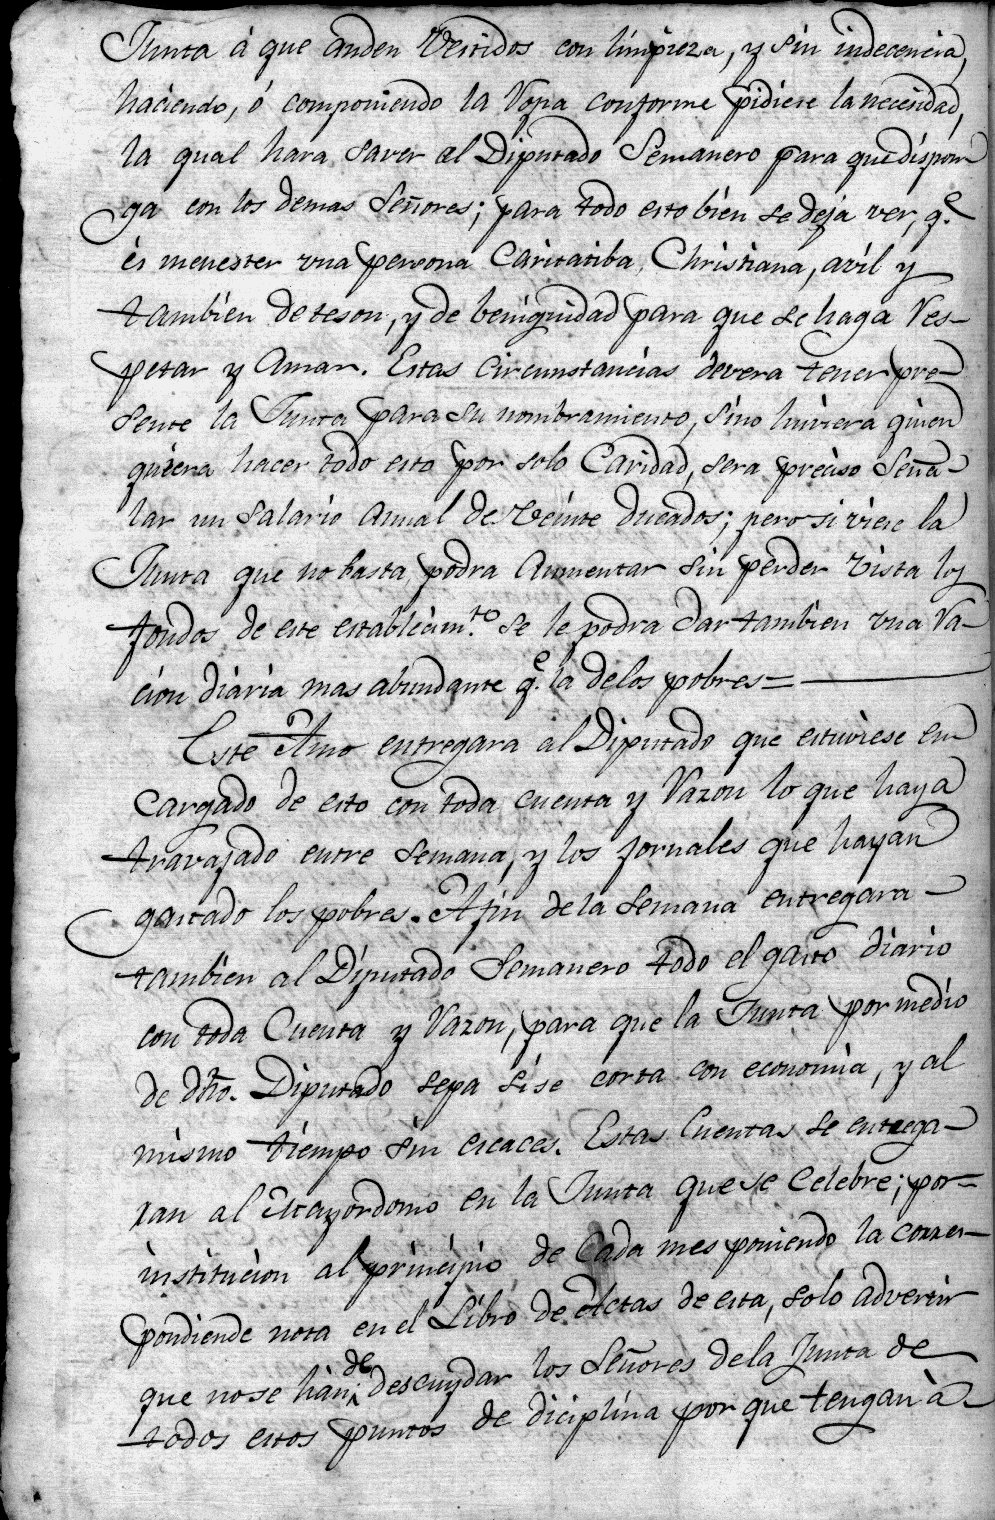 Junta á que anden Vestidos con limpieza, y sin indecencia,
haciendo, ó componiendo la Ropa conforme pidiese la necesidad,
la qual hara saver al Diputado Semanero para que dispon-
ga con los demas Señores; para todo esto bien se deja ver, q.e
és menester vna persona Caritatiba, Christiana, avil y
tambien de teson, y de benignidad para que se haga Res-
petar y Amar. Estas circunstancias devera tener pre-
sente la Junta para su nombramiento, sino huviera quien
quiera hacer todo esto por solo Caridad, sera preciso Seña-
lar un salario Anual de veinte ducados; pero si viere la
Junta que no basta, podra Aumentar sin perder vista los
fondos de este establecim.to se le podra dar tambien vna Ra-
cion diaria mas abundante q.e la de los pobres=
Este Amo entregara al Diputado que estuviese en-
cargado de esto con toda cuenta y Razon lo que haya
travajado entre semana, y los jornales que hayan
gastado los pobres. A fin de la semana entregara
tambien al Diputado Semanero todo el gasto diario
con toda Cuenta y Razon, para que la Junta por medio
de dho. Diputado sepa si se corta con economia, y al
mismo tiempo sin escaces. Estas Cuentas se entrega-
ran al Mayordomo en la Junta que se Celebre; por=
institucion al principio de Cada mes poniendo la corres-
pondiende nota en el Libro de Actas de esta, solo advertir
que no se hán de descuydar los Señores de la Junta de
todos estos puntos de diciplina por que tengan à